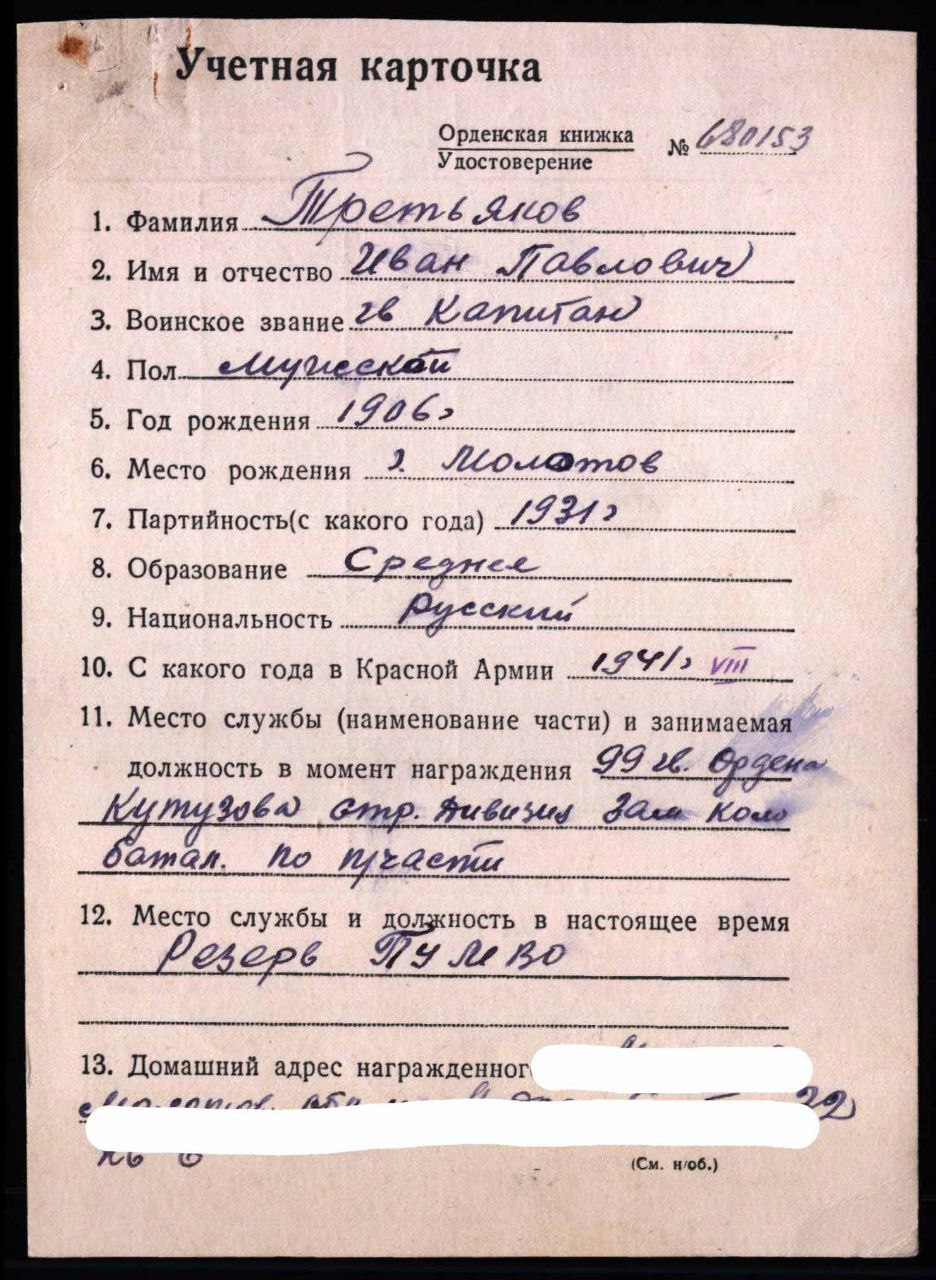 Учетная карточка
Орденская книжка
Удостоверение № 680153
1. Фамилия Третьяков
2. Имя и отчество Иван Павлович
3. Воинское звание гв Капитан
4. Пол Мужской
5. Год рождения 1906 г
6. Место рождения г. Молотов
7. Партийность(с какого года) 1931 г
8. Образование Среднее
9. Национальность Русский
10. С какого года в Красной Армии 1941 г VIII
11. Место службы (наименование части) и занимаемая
должность в момент награждения 99 гв. Ордена
Кутузова стр. дивизия Зам Ком
батал. по п/части
12. Место службы и должность в настоящее время
Резерв ПУ МВО
13. Домашний адрес награжденног
22
кв 6
(См. н/об.)